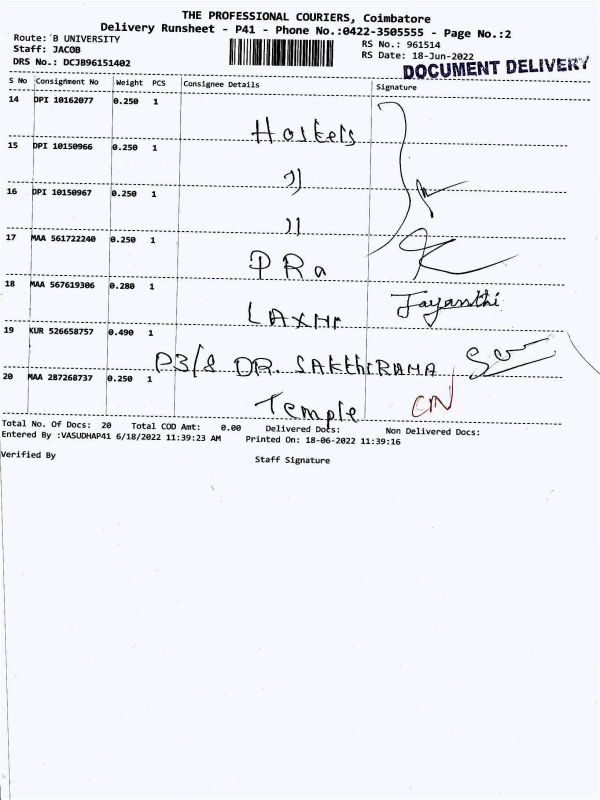 THE PROFESSIONAL COURIERS, Coimbatore
Delivery Runsheet - P41 - Phone No.:0422-3505555 - Page No.:2
Route: B UNIVERSITY
Staff: JACOB
DRS No.: DCJB96151402
RS No.: 961514
RS Date: 18-Jun-2022
DOCUMENT DELIVERY
S No Consignment No Weight PCS Consignee Details Signature
14 DPI 10162077 0.250 1
Hostels
15 DPI 10150966 0.250 1
"
16 DPI 10150967 0.250 1
"
17 MAA 561722240 0.250 1
PRa
18 MAA 567619306 0.280 1
LAXMI Jayanthi
19 KUR 526658757 0.490 1
P3/8 DR. SAKthiRAMA
20 MAA 287268737 0.250 1
Temple CN
Total No. Of Docs: 20 Total COD Amt: 0.00 Delivered Docs: Non Delivered Docs:
Entered By :VASUDHAP41 6/18/2022 11:39:23 AM Printed On: 18-06-2022 11:39:16
Verified By Staff Signature